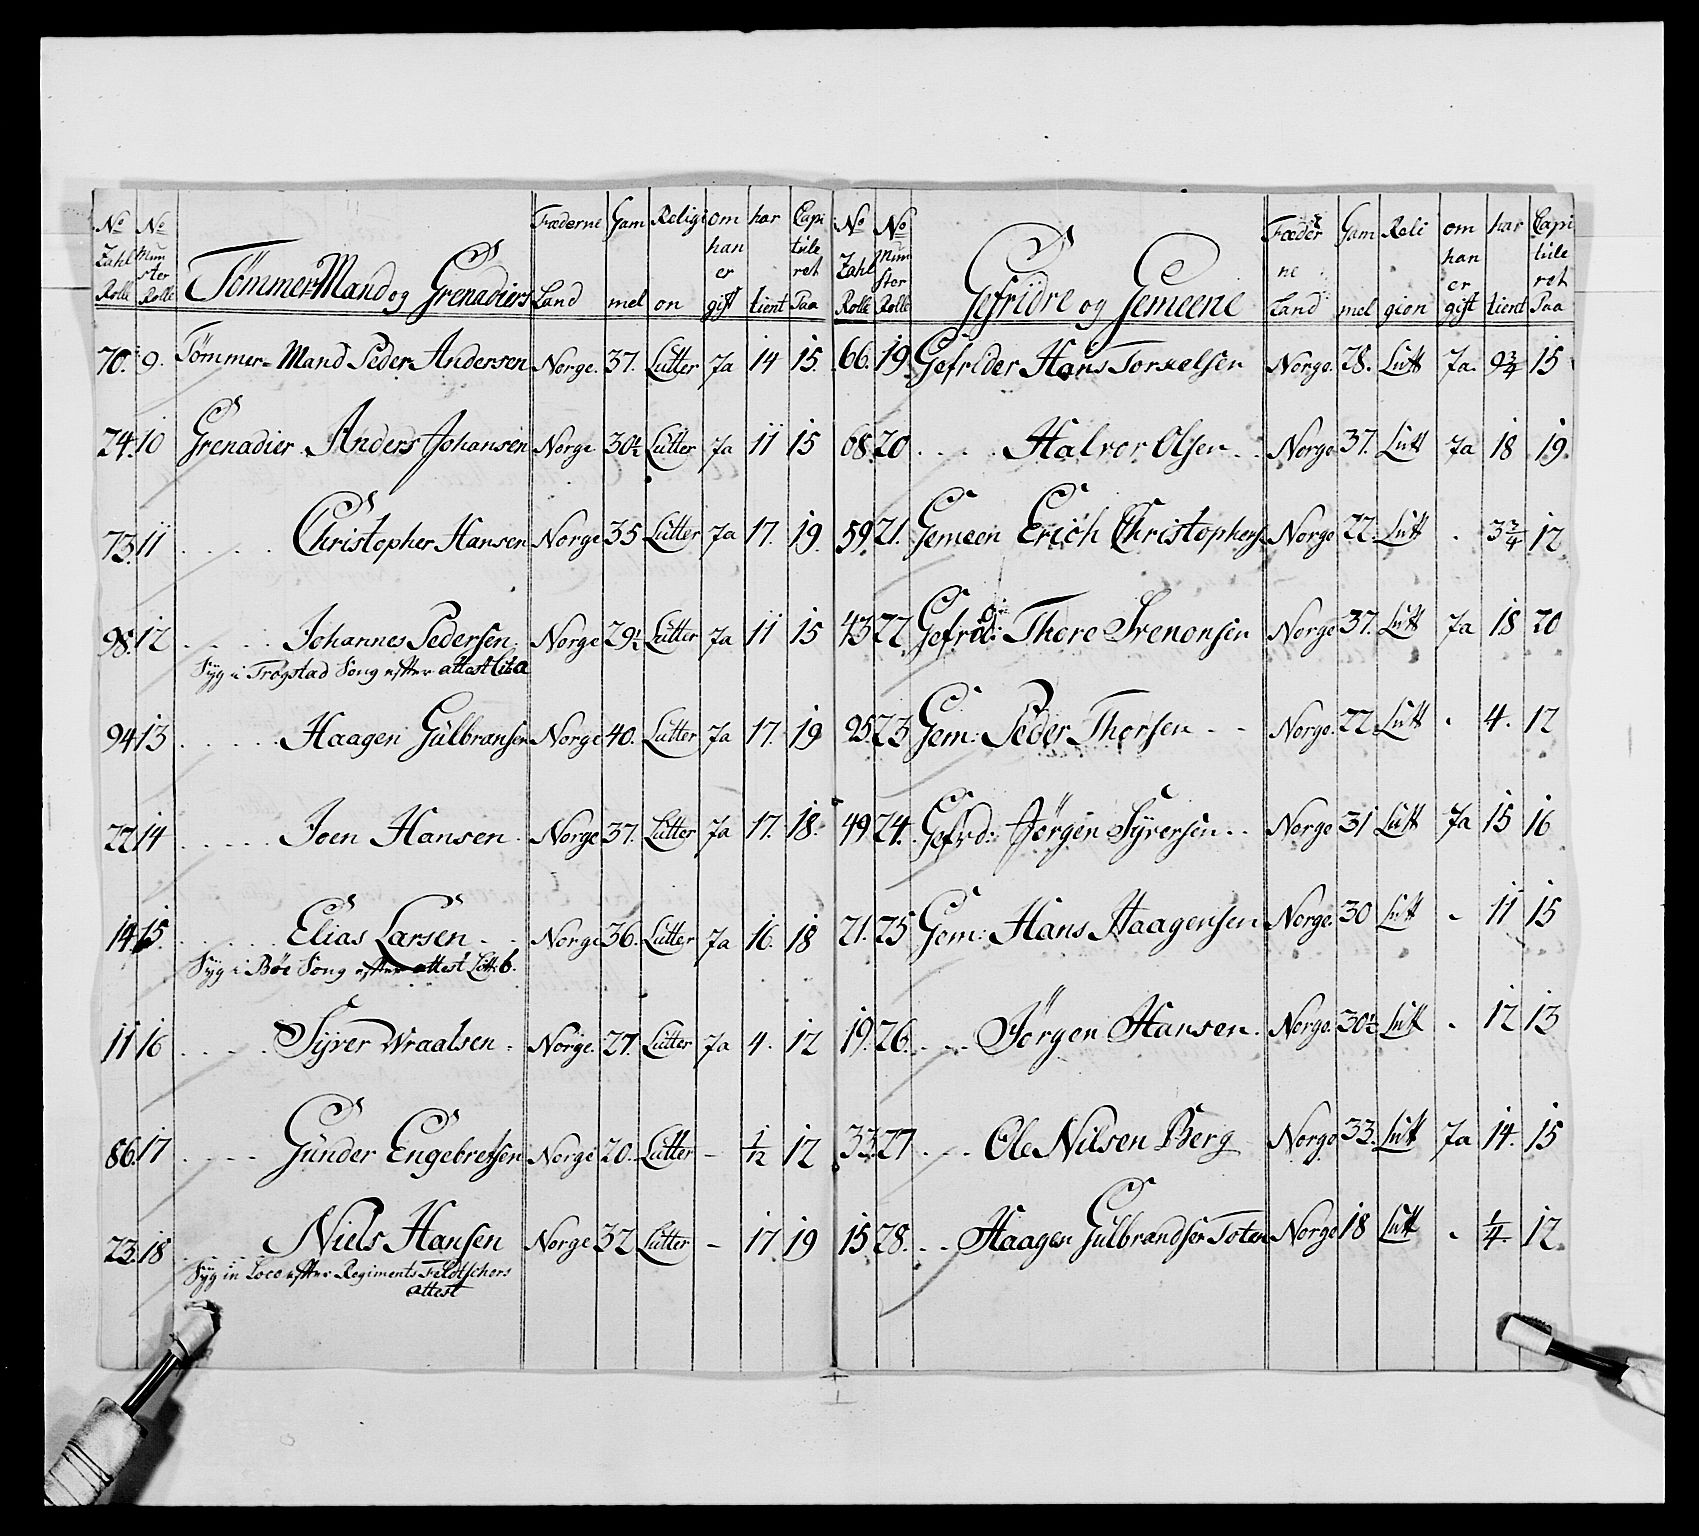 No Zahl Rolle | No Mun ster Rolle | Tömmer-Mand og Grenadiers | Fæderne Land | Gam mel | Religi on | om han er gift | har tient | Capi tule ret Paa
70. 9. Tömmer-Mand Peder Andersen Norge. 37. Lutter Ja 14 15.
24. 10 Grenadier Anders Johansen Norge 30½ Lutter Ja 11 15
73. 11 . . . . Christopher Hansen Norge 35 Lutter Ja 17. 19.
98. 12 . . . . Johannes Pedersen Norge 29½ Lutter Ja 11 15
Syg i Trøgstad Song efter attest Lit a
94. 13 . . . . . Haagen Gulbransen Norge 40. Lutter Ja 17. 19
22. 14 . . . . . Joen Hansen . Norge 37. Lutter Ja 17. 18.
14. 15. . . . . . Elias Larsen - - Norge 36. Lutter Ja 16. 18
Syg i Böe Song efter attest Litt: b.
11 16 . . . . . Syver Wraalsen . Norge. 27. Lutter Ja 4. 12
86. 17 . . . - - Gunder Engebretsen Norge 20. Lutter - 1/12 12
23. 18 . . . . Niels Hansen Norge 32 Lutter - 17. 19
Syg in Loco efter Regiments Feldtschers
attest
No Zahl Rolle | No Mun ster Rolle | Gefridre og Gemeene | Fæder ne Land | Gam mel | Reli gion | om han er gift | har tient | Capi tule ret Paa
66. 19 Gefrider Hans Torkelsen Norge. 28. Lutt Ja. 9¾ 15
68. 20 . . . . Halvor Olsen . . Norge 37. Lutt Ja 18 19.
59. 21. Gemeen Erich Christophers Norge 22. Lutt . 3¾ 12
43 22 Gefrd: Thore Svenonsen Norge 37. Lutt Ja 18 20
25. 23 Gem: Peder Thorsen - - Norge. 22. Lutt . 4. 12
49 24. Gefrd: Jörgen Syversen . . Norge 31 Lutt Ja 15 16
21. 25 Gem: Hans Haagensen Norge. 30 Lutt - 11 15
19. 26. . . . Jörgen Hansen. Norge. 30½ Lutt . 12 13
33. 27 . . . Ole Nilsen Berg Norge 33. Lutt Ja 14. 15
15. 28. . . Haagen Gulbrandsen Toten Norge 18 Lutt . ¼ 12.